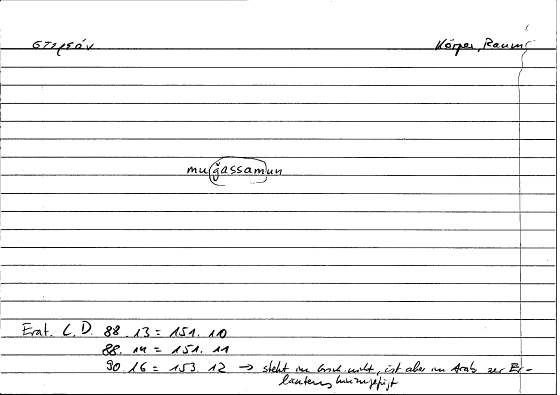 στερεόν Körper, Raum
muǧassamun
Erat. C. D. 88. 13 = 151. 10
88. 14 = 151. 11
90. 16 = 153. 12 → steht im Griech. nicht, ist aber im Arab. zur Er-
läuterung hinzugefügt